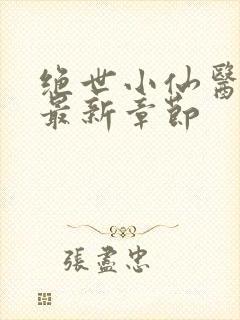 绝世小仙醫
最新章節
張盡忠